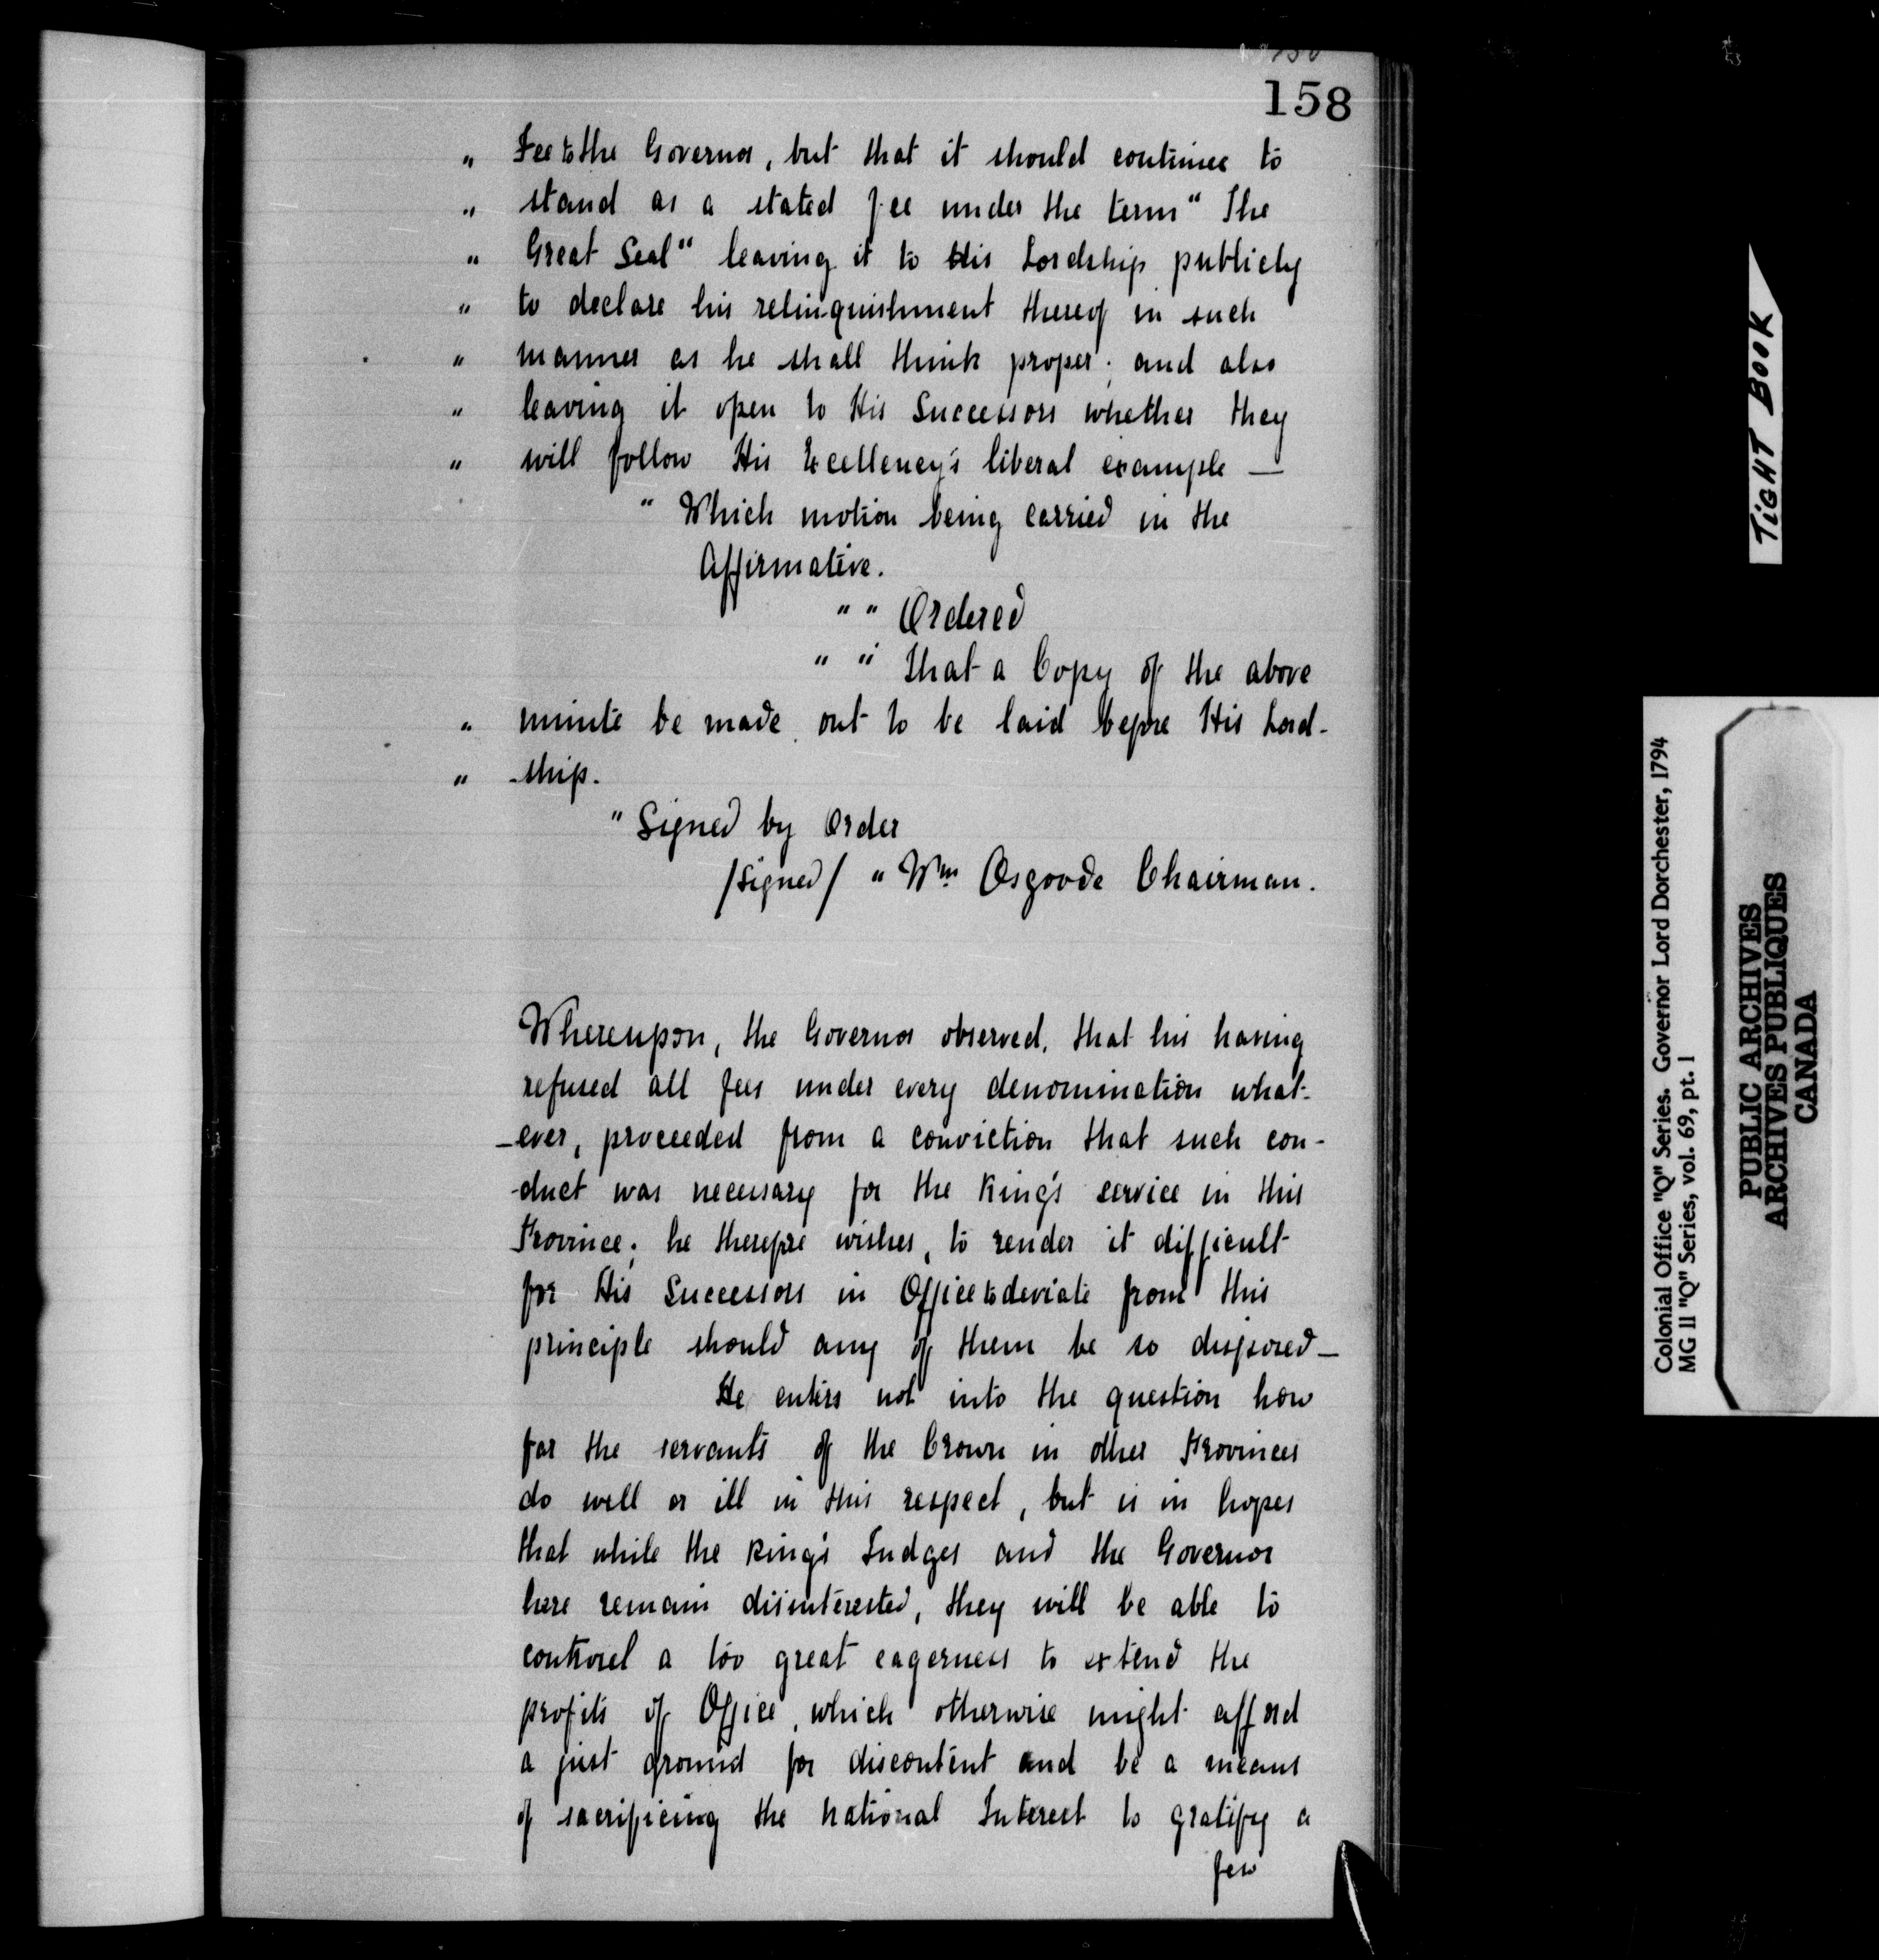 158
" Fee to the Governor, but that it should continue to
" stand as a stated fee under the term "The
" Great Seal" leaving it to His Lordship publicly
" to declare his relinquishment thereof in such
" manner as he shall think proper; and also
" leaving it open to His Successors whether they
" will follow His Excellency's liberal example —
" Which motion being carried in the
Affirmative.
" " Ordered
" " that a Copy of the above
" minute be made out to be laid before His Lord-
" -ship.
" Signed by Order
/signed/ " Wm Osgoode Chairman.
Whereupon, the Governor observed, that his having
refused all fees under every denomination what-
-ever, proceeded from a conviction that such con-
-duct was necessary for the King's service in this
Province; he therefore wishes, to render it difficult
for His Successors in Office to deviate from this
principle should any of them be so disposed —
He enters not into the question how
far the servants of the Crown in other Provinces
do well or ill in this respect, but is in hopes
that while the King's Judges and the Governor
here remain disinterested, they will be able to
controul a too great eagerness to extend the
profits of Office, which otherwise might afford
a just ground for discontent and be a means
of sacrificing the national Interest to gratify a
few
TIGHT BOOK
Colonial Office "Q" Series. Governor Lord Dorchester, 1794
MG 11 "Q" Series, vol. 69, pt. 1
PUBLIC ARCHIVES
ARCHIVES PUBLIQUES
CANADA